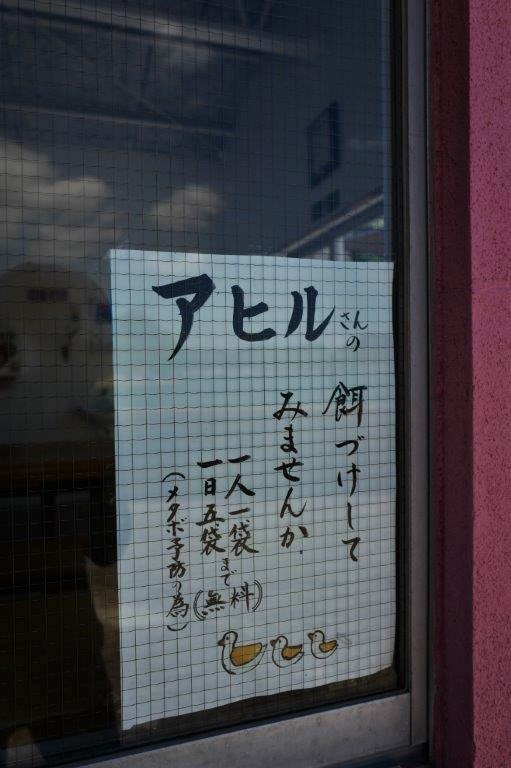 アヒルさんの
餌づけして
みませんか.
一人一袋まで(無料)
一日五袋
(メタボ予防の為)